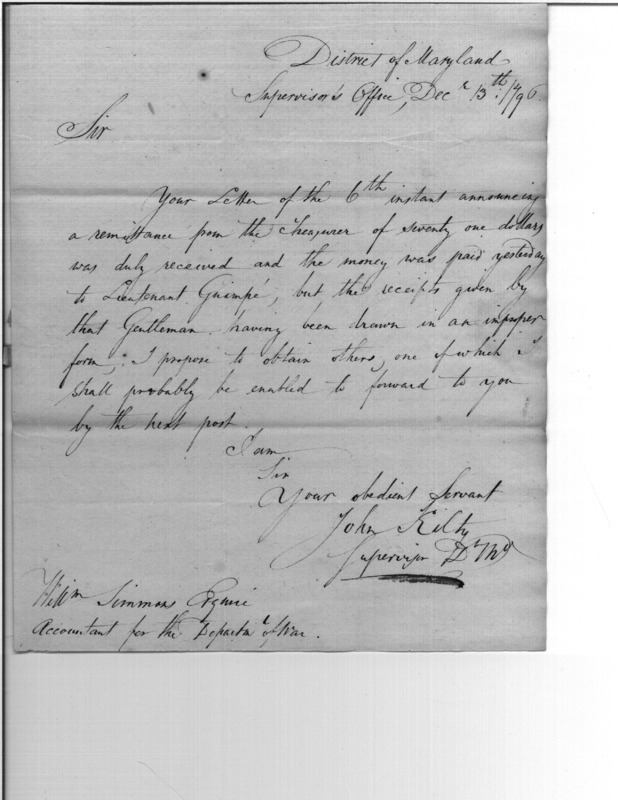 District of Maryland
Supervisor's Office, Decr 13th 1796
Sir
Your Letter of the 6th instant announcing
a remittance from the Treasurer of seventy one dollars
was duly received and the money was paid yesterday
to Lieutenant Guimpé, but the receipts given by
that Gentleman having been drawn in an improper
form, I propose to obtain others, one of which I
shall probably be enabled to forward to you
by the next post.
I am
Sir
Your obedient Servant
John Kilty
Supervisor Dt Md
Willm Simmons Esquire
Accountant for the Departmt of War.